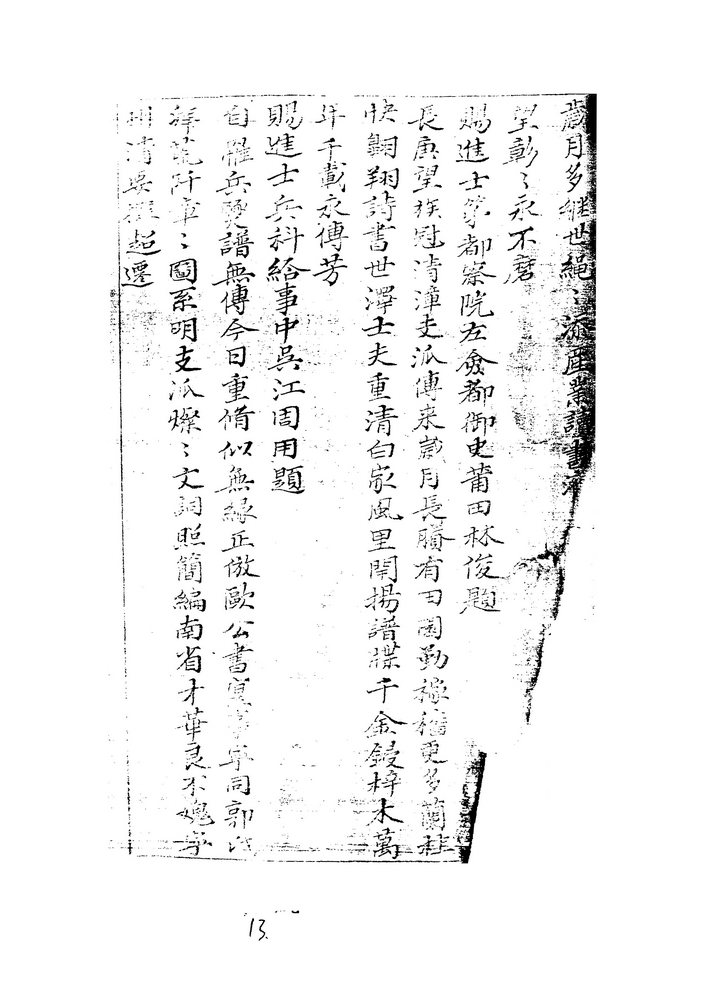 歲月多継世縄〻添産業讀書
望彰〻永不磨
賜進士第都察院左僉都御史莆田林俊題
長庚望族冠清漳支派傳来歲月長賸有田園勤稼穡更多蘭桂
快翺翔詩書世澤士夫重清白家風里閈揚譜牒千金鋟梓木萬
年千載永傳芳
賜進士兵科給事中吳江周用題
自罹兵燹譜無傳今日重脩似無緣正倣歐公書寔事寧同郭氏
拜荒阡卓〻圖系明支派燦〻文詞照簡編南省才華良不媿寧
清要擬超遷
13